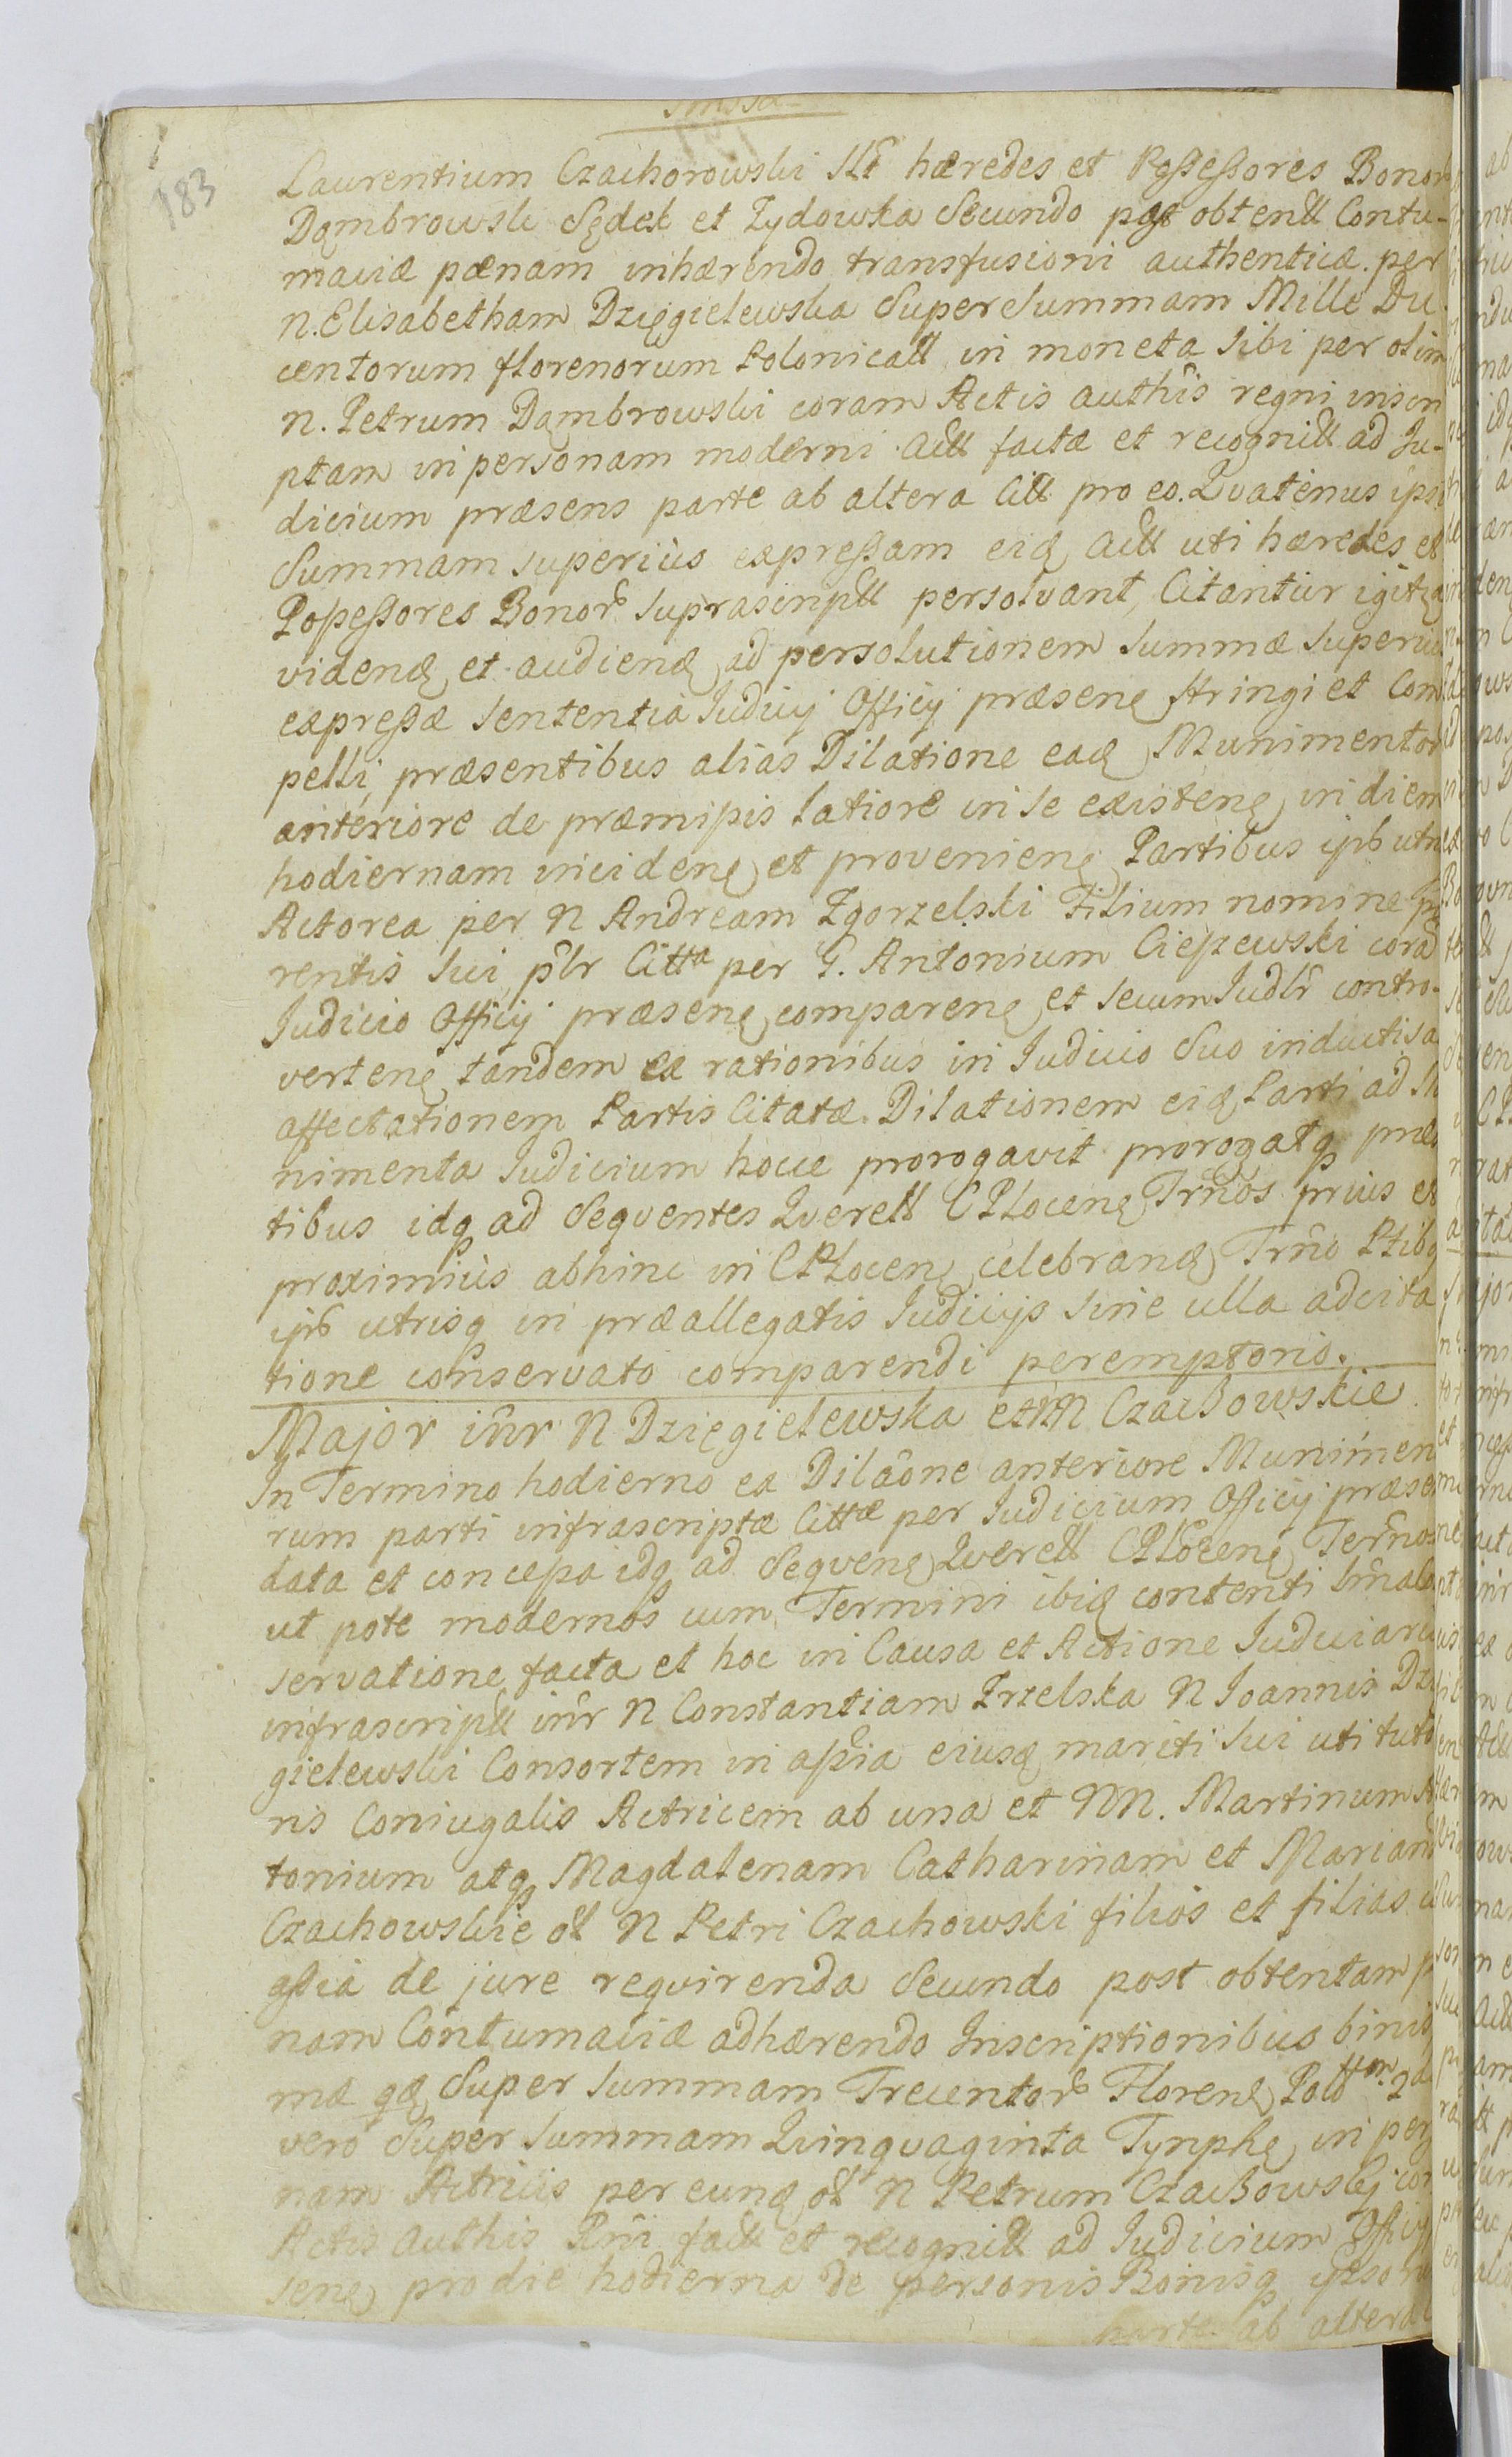 183
Laurentium Czachorowski hæredes et Possessores Bonor
Dąmbrowsk Sędek et Zydowka Secundo post obtentt Contu-
maciæ pænam inhærendo transfusioni authenticæ per
N. Elisabetham Dzięgielewska Super Summam Mille Du
centorum florenorum Polonicatt in moneta sibi per olim
N. Petrum Dąmbrowski coram Actis auth̃is regni inscri
ptam in personam moderni Actt factæ et recognitt ad Ju-
dicium præsens parte ab altera Citt pro eo. Quatenus ipsi
Summam superiùs expressam eid Actt uti hæredes et
Possessores Bonor suprascriptt persolvant, Citantur igitr
videnđ et audienđ ad persolutionem summæ superius
expressæ sententia Judicij Officij præsenę stringi et Com
pelli, præsentibus alias Dilatione ead Munimentor
anteriore de præmissis latiore in se existenę in diem
hodiernam incidenę et provenienę Partibus ipsis utris
Actorea per N Andream Zgorzelski Filium nomine Pa
rentis sui, pt̃r Citta per G. Antonium Ciepzewski corã
Judicio Officij præsenę comparenę et secum Judlr contro-
vertenę tandem ex rationibus in Judicio Suo inductis a
affectationem Partis Citatæ Dilationem eid Parti ad Mu
nimenta Judicium hocce prorogavit prorogatq præs
tibus idq ad Sequentes Querell C Plocenę Trños prius et
proximiùs abhinc in CPlocenę celebranđ Trño Ptibq
ipsis utrisq in præallegatis Judicijs sine ulla adcita
tione conservato comparendi peremptorio.
Major iñr N Dzięgielewska et NN Czachowskie
In Termino hodierno ex Dilãone anteriore Munimen
rum parti infrascriptæ Cittæ per Judicium Officij præsen
data et concessa idq ad Sequenę Querell CPlocenę Term̃os
ut pote modernos cum Termini ibid contenti
servatione facta et hoc in Causa et Actione Judiciaria
infrascriptt iñr N Constantiam Zrzelska N Joannis Dzię
gielewski Consortem in assia eiusd mariti sui uti tuto
ris Coniugalis Actricem ab una et NN. Martinum An
tonium atq Magdalenam Catharinam et Mariann
Czachowskie ol N Petri Czachowski filios et filias
assia de jure requirenda Secundo post obtentam pæ
nam Contumaciæ adhærendo Inscriptionibus binis
mæ qđ Super summam Trecentor Florenę Poltt 2da
vero Super summam Quinquaginta Tynphę in perso
nam Actricis per eund ol N Petrum Czachowskj cor
Actis auth̃is Rñi factt et recognitt ad Judicium Officij
senę pro die hodierna de personis Bonisq ipso
parte ab altera